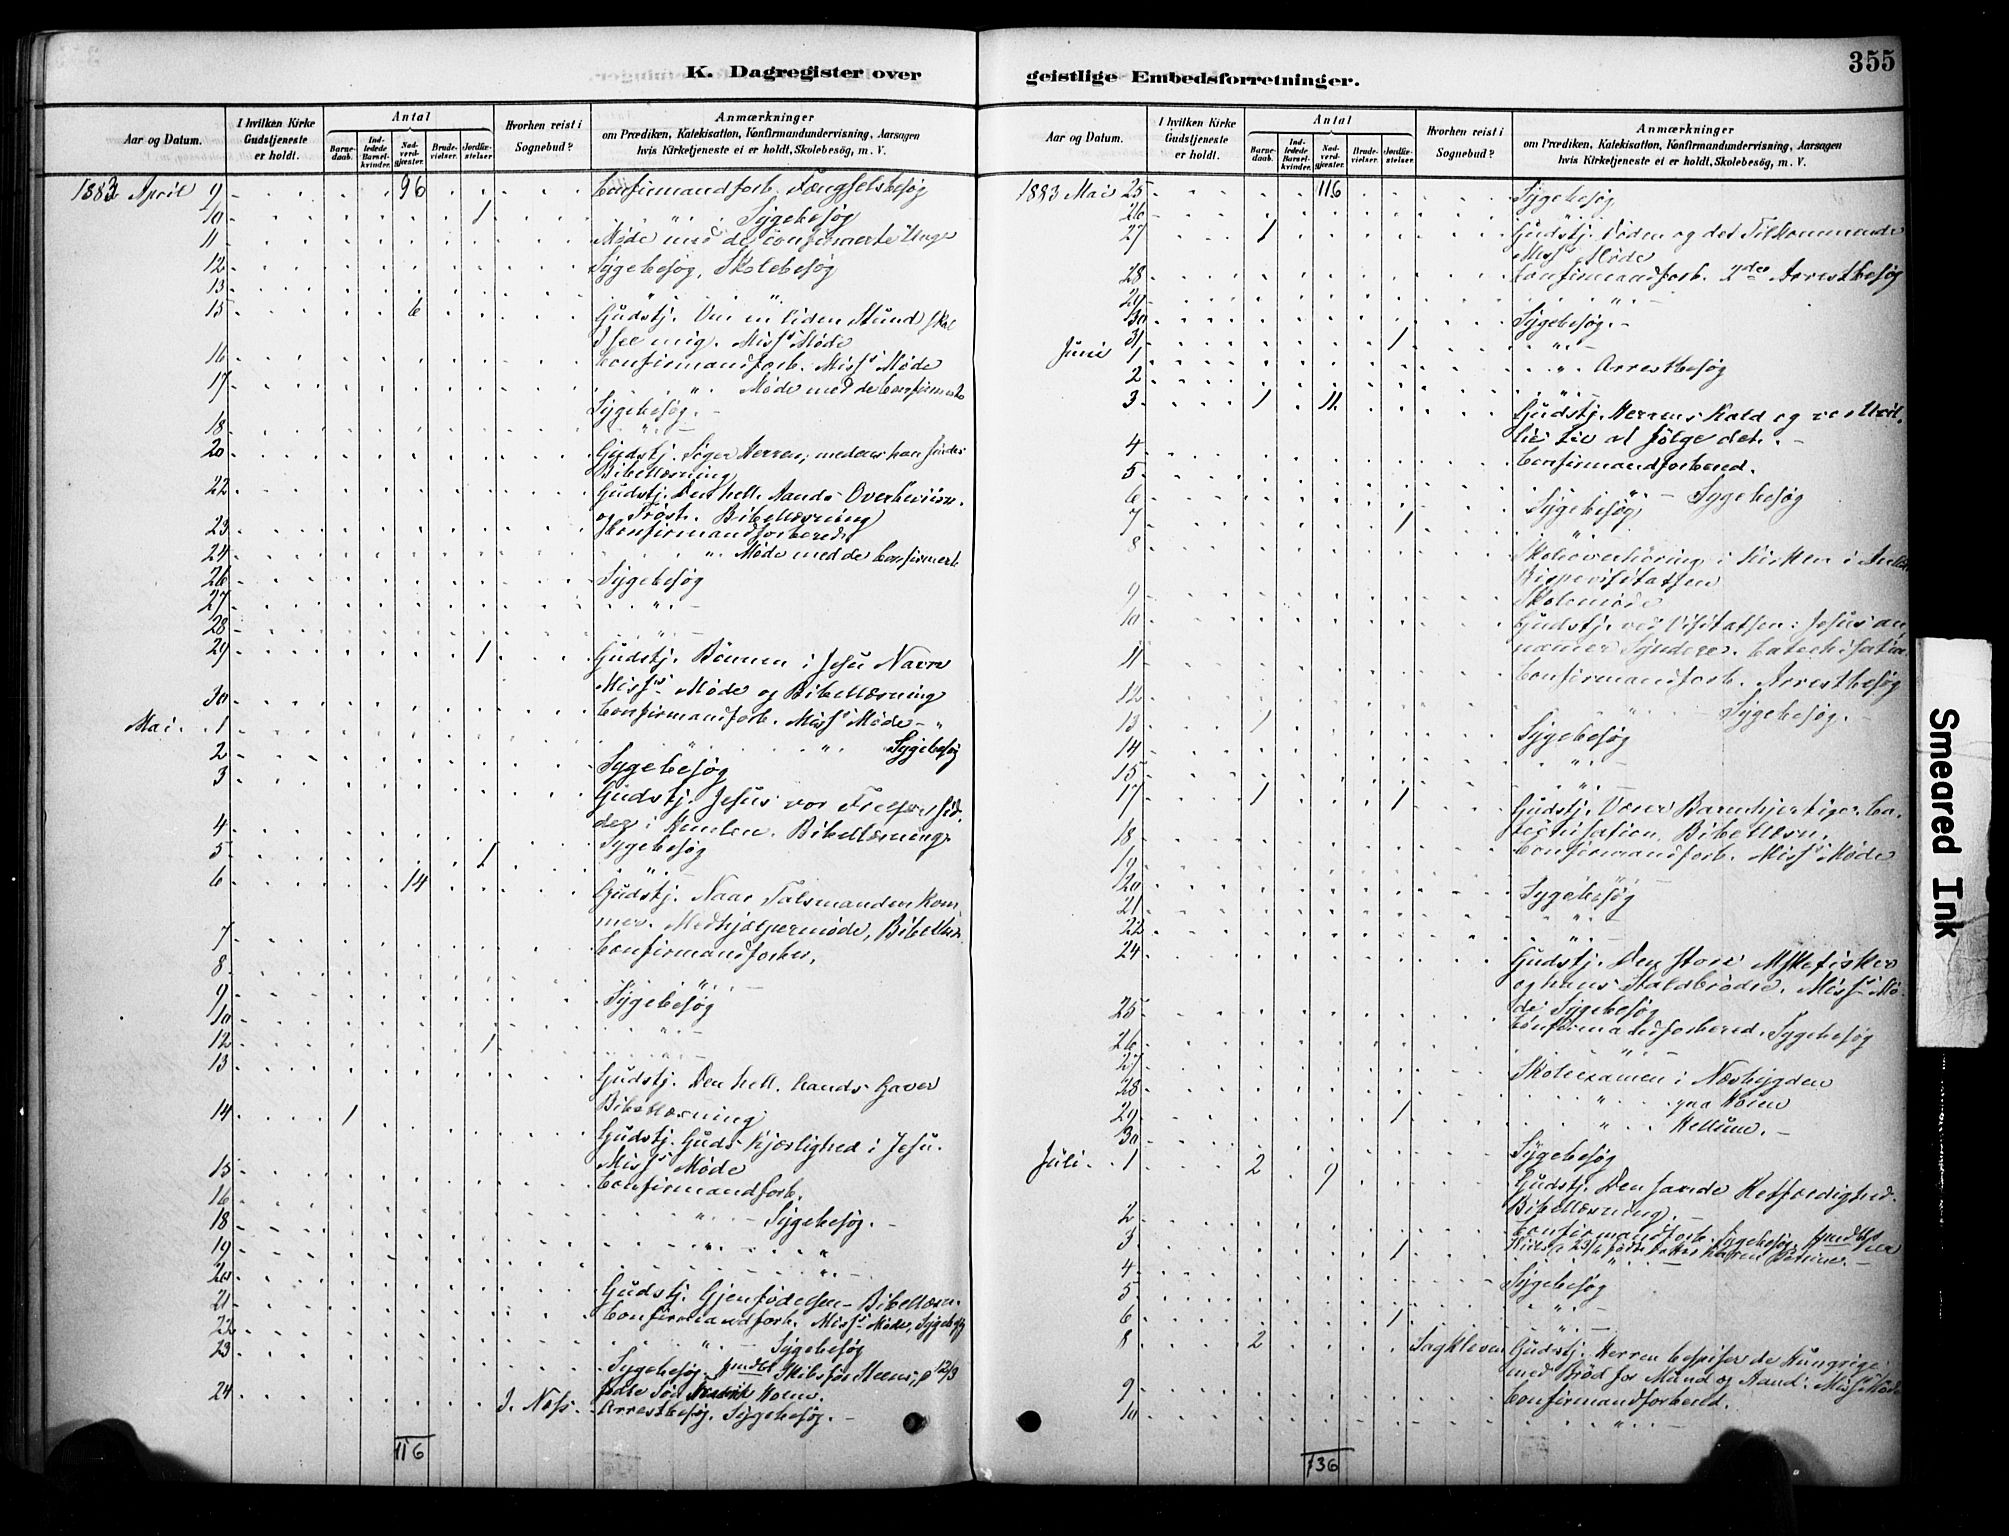 K. Dagregister over
geistlige Embedsforretninger.
355
Aar og Datum.
I hvilken Kirke Gudstjeneste er holdt.
Antal
Barnedaab.
Indledede Barselkvinder.
Nadverdgjester.
Brudevielser.
Jordfæstelser.
Hvorhen reist i Sognebud?
Anmærkninger
om Prædiken, Katekisation, Konfirmandundervisning, Aarsagen
hvis Kirketjeneste ei er holdt, Skolebesög, m. V.
1883 April 9 96 Confirmandforb. Fængselsbesøg
10 1 " Sygebesøg
11 Møde med de confirmerte Unge
12 Sygebesøg, Skolebesøg
13 " "
15 6 Gudstj. Om en liden Stund skal
I see mig. Miss's Møde
16 Confirmandforb. Miss's Møde
17 " Møde med de Confirmerte
Sygebesøg. -
18 "
20 Gudstj. Søger Herren, medens han findes
Bibellæsning
22 Gudstj. Den hell. Aands Overbeviisn.
og Trøst. Bibellæsning
23 Confirmandforbered.
24 " Møde med de Confirmerte
26 Sygebesøg
27 " -
28 " -
29 1 Gudstj. Bønnen i Jesu Navn
Miss's Møde og Bibellæsning
30 Confirmandforb. Miss's Møde - "
Mai. 1 " " Sygebesøg
2 Sygebesøg
3 Gudstj. Jesus vor Frelser
i Himlen. Bibellæsning
4 Sygebesøg
5 1 "
6 14 Gudstj. Naar Talsmanden kom
mer. Medhjælpermøde, Bibellæsn.
7 Confirmandforber.
8 " -
9 Sygebesøg
10 " -
12 1
13 Gudstj. Den hell. Aands Gaver
Bibellæsning
14 1 Gudstj. Guds Kjærlighed i Jesu.
Miss's Møde
15 Confirmandforb.
16 " - Sygebesøg. -
18 " "
19 " -
20
21 Gudstj. Gjenfødelsen - Bibellæsn.
22 Confirmandforb. Miss's Møde, Sygebesøg
23 " - Sygebesøg
Sygebesøg, 12/3
24 J. Næss. Arrestbesøg. Sygebesøg. -
116
Aar og Datum.
I hvilken Kirke Gudstjeneste er holdt.
Antal
Barnedaab.
Indledede Barselkvinder.
Nadverdgjester.
Brudevielser.
Jordfæstelser.
Hvorhen reist i Sognebud?
Anmærkninger
om Prædiken, Katekisation, Konfirmandundervisning, Aarsagen
hvis Kirketjeneste ei er holdt, Skolebesög, m. V.
1883 Mai 25 116 Sygebesøg
26 "
27 1 Gudstj. Døden og det Tilkommende
Miss's Møde
28 Confirmandforb. 2den Arrestbesøg
29 " -
30 Sygebesøg. -
31 1 " -
Juni 1 " Arrestbesøg
2 "
3 1 11 Gudstj. Herrens Kald og vor
til at følge det. -
4 Confirmandforbered.
5 " - Sygebesøg
6 Sygebesøg
7 1 "
8 Skoleoverhøring i Kirken i
Bispevisitatsen
9 Skolemøde
10 Gudstj. ved Visitatsen: Jesus an
nammer Syndere. Catechisation
11 Confirmandforb. Arrestbesøg
12 " - Sygebesøg. -
13 1 Sygebesøg
14 " -
15 " -
17 1 1 Gudstj. Værer Barmhjertige. Ca-
techisation, Bibellæsn.
18 Confirmandforb. Miss's Møde
19 " -
20 Sygebesøg
21 " -
22 " -
24 Gudstj. Den store
og hans Staldbrødre. Miss's Mø-
de Sygebesøg
25 Confirmandforbered. Sygebesøg
26 " -
27 Skoleexamen i Næsbygden
28 " paa Hoien
29 1 " Kellum. -
30 Sygebesøg
Juli. 1 2 9 Gudstj. Den sande Retfærdighed.
Bibellæsning. -
2 Confirmandforb. Sygebesøg,
3 1 23/6
4 Sygebesøg
5 " -
6 1 " -
8 2 Sagkliven Gudstj. Herren bespiser de hungrige
med Brød for Mund og Aand. Miss's Møde
9 Confirmandforbered.
10 " -
136
Smeared Ink